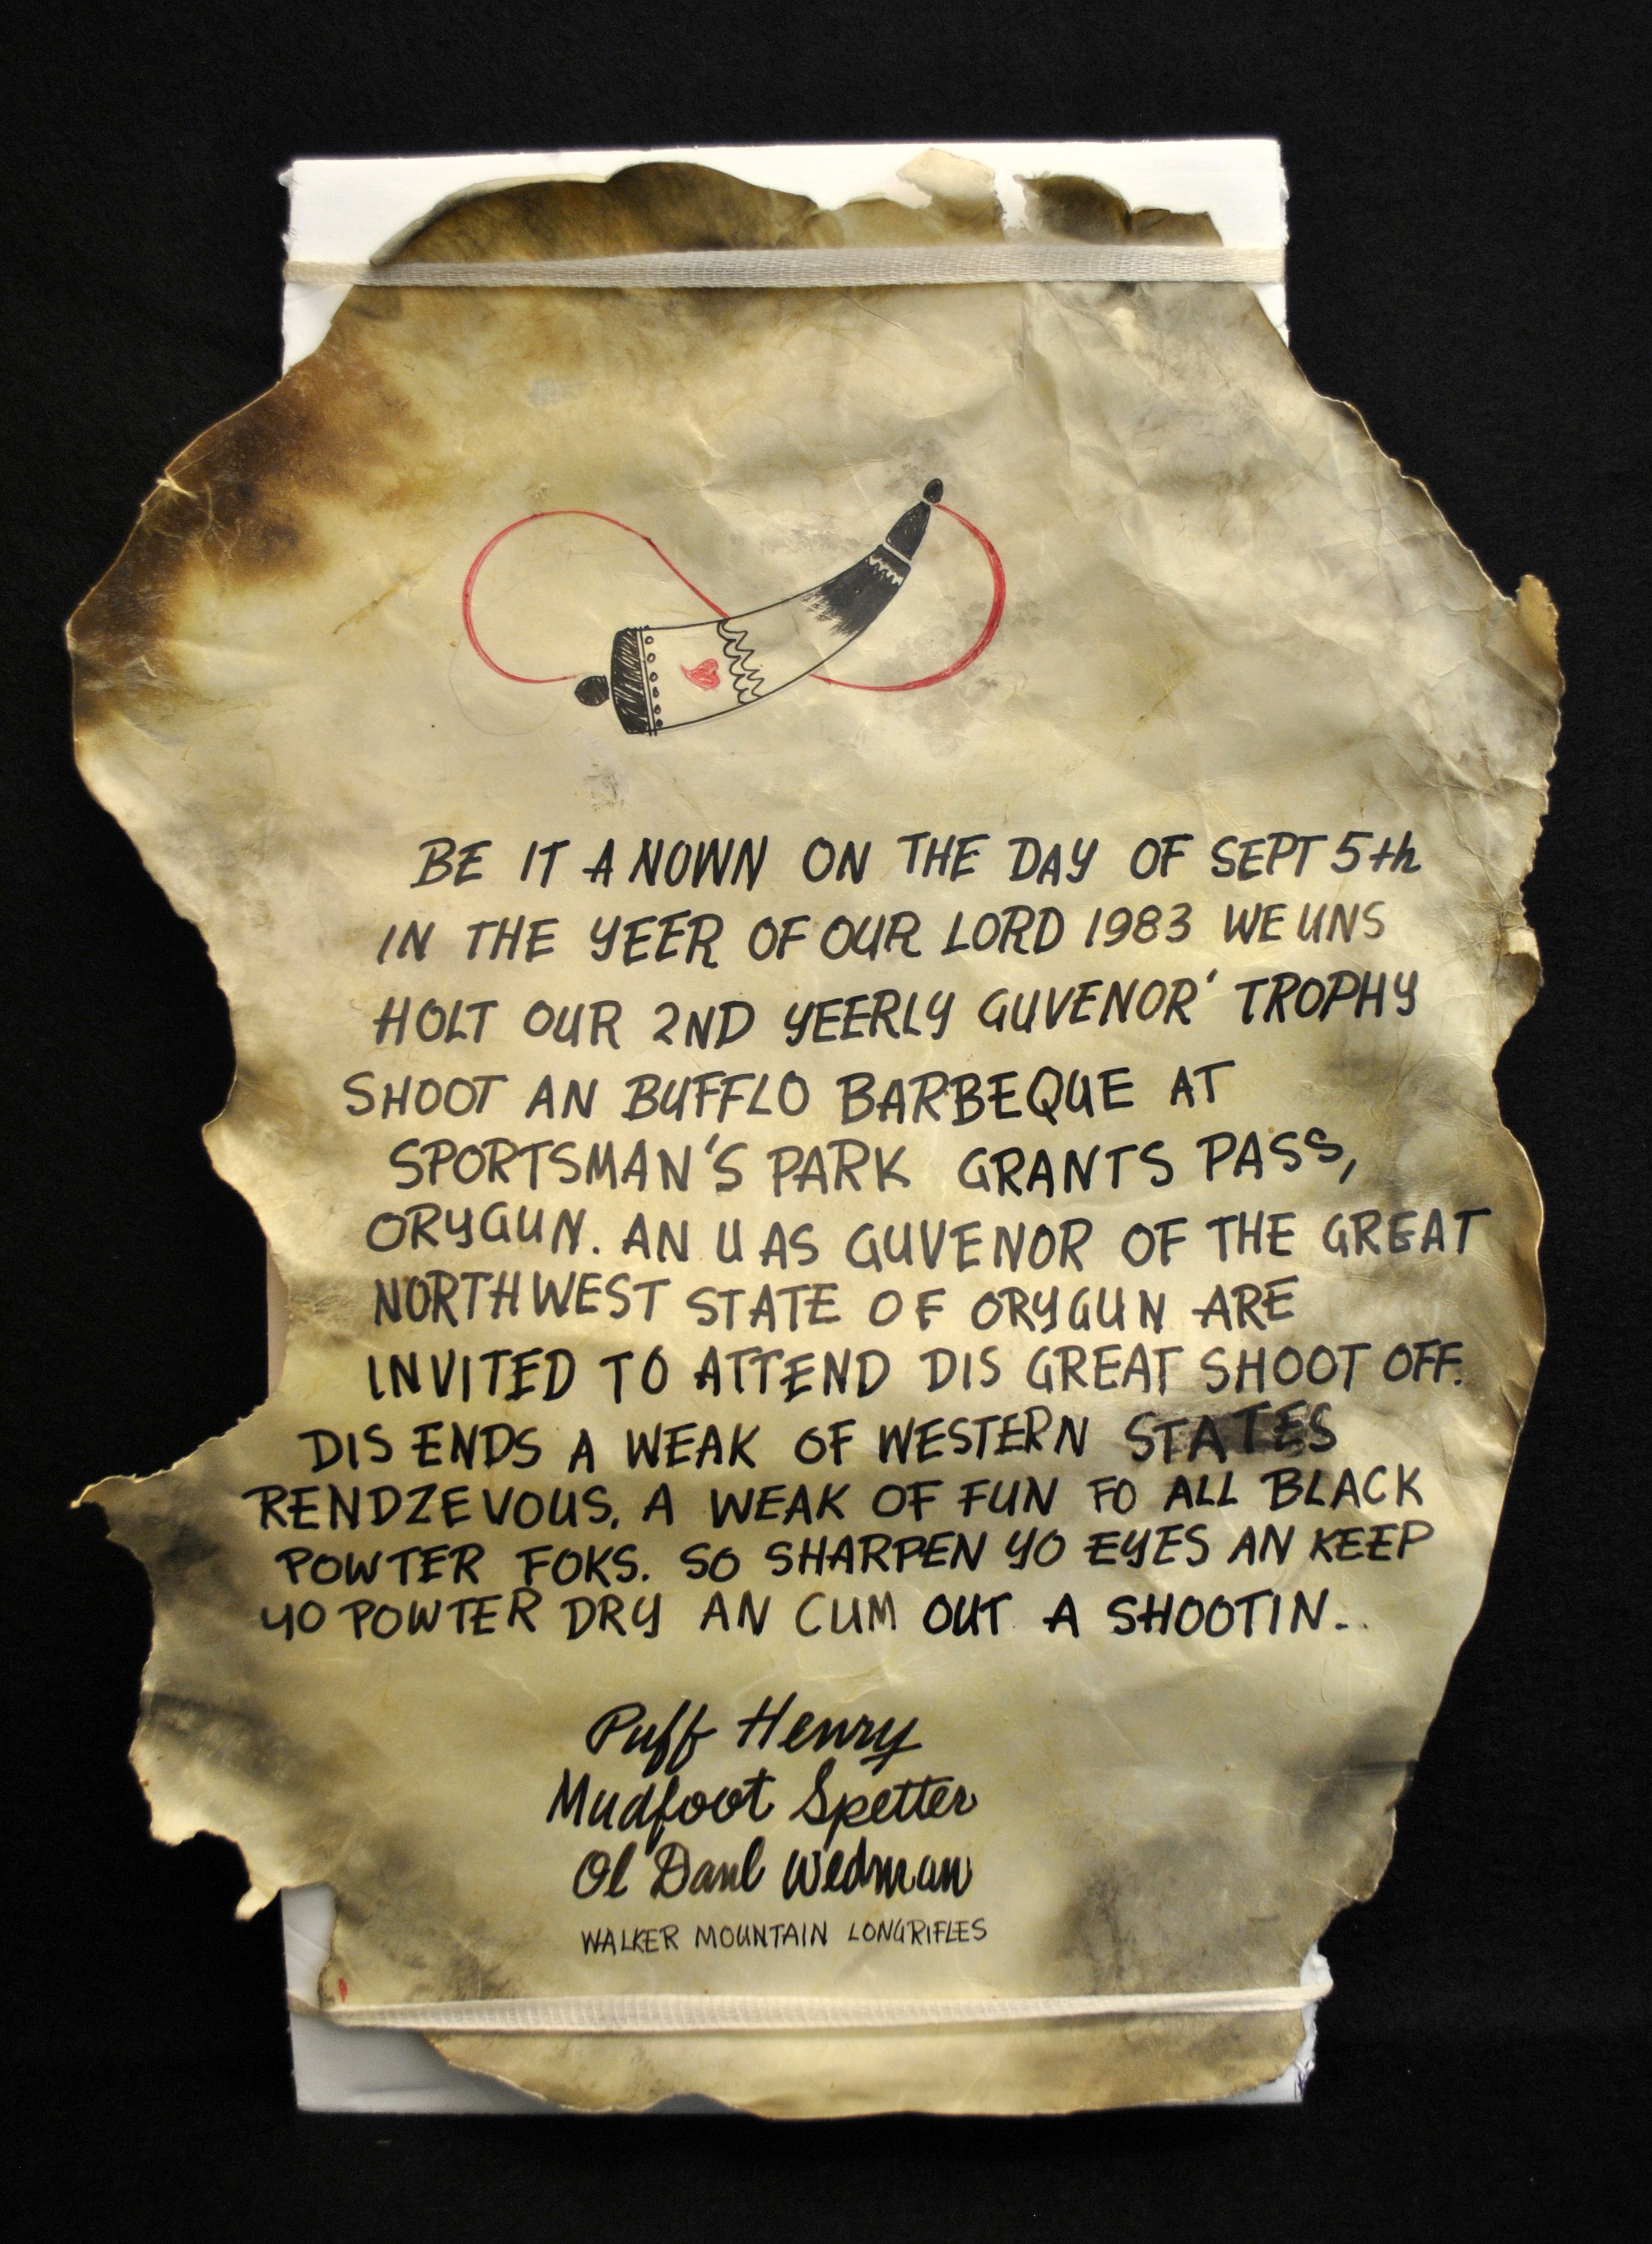 BE IT A NOWN ON THE DAY OF SEPT 5th
IN THE YEER OF OUR LORD 1983 WE UNS
HOLT OUR 2ND YEERLY GUVENOR' TROPHY
SHOOT AN BUFFLO BARBEQUE AT
SPORTSMAN'S PARK GRANTS PASS,
ORYGUN. AN U AS GUVENOR OF THE GREAT
NORTHWEST STATE OF ORYGUN ARE
INVITED TO ATTEND DIS GREAT SHOOT OFF.
DIS ENDS A WEAK OF WESTERN STATES
RENDZEVOUS. A WEAK OF FUN FO ALL BLACK
POWTER FOKS. SO SHARPEN YO EYES AN KEEP
YO POWTER DRY AN CUM OUT A SHOOTIN..
Puff Henry
Mudfoot Spetter
Ol Danl Wedman
WALKER MOUNTAIN LONGRIFLES